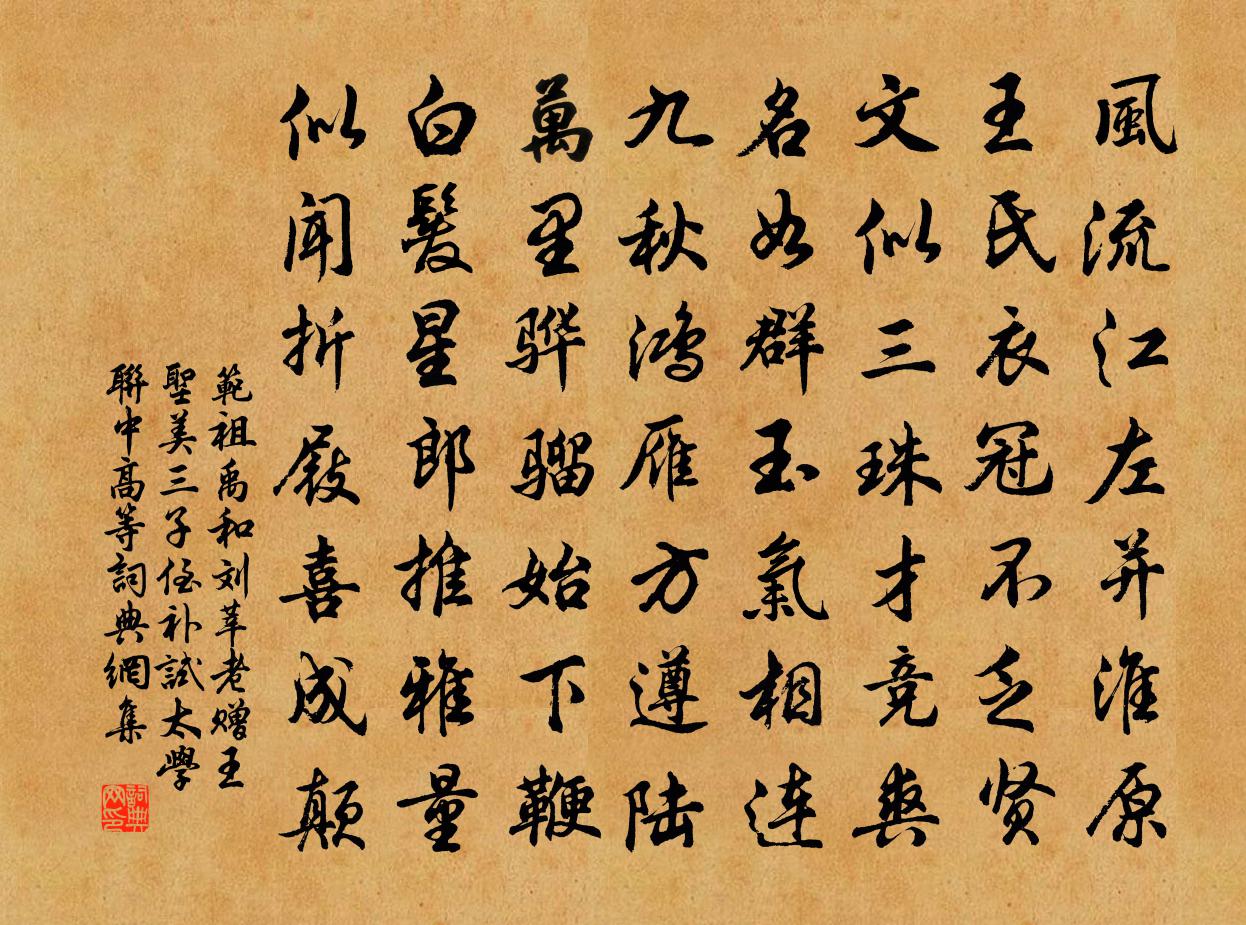 風流江左并淮原
王氏衣冠不乏贤
文似三珠才竞爽
名如群玉氣相連
九秋鴻雁方遵陆
萬里骅骝始下鞭
白髮星郎推雅量
似闻折屐喜成颠
範祖禹和刘莘老赠王
聖美三子侄补試太學
聯中高等詞典網集
詞典网印